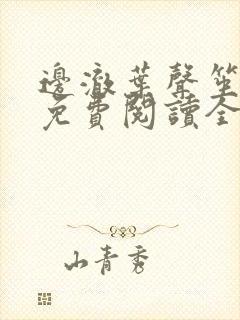 邊澈葉聲笙
免費閱讀全
山青秀